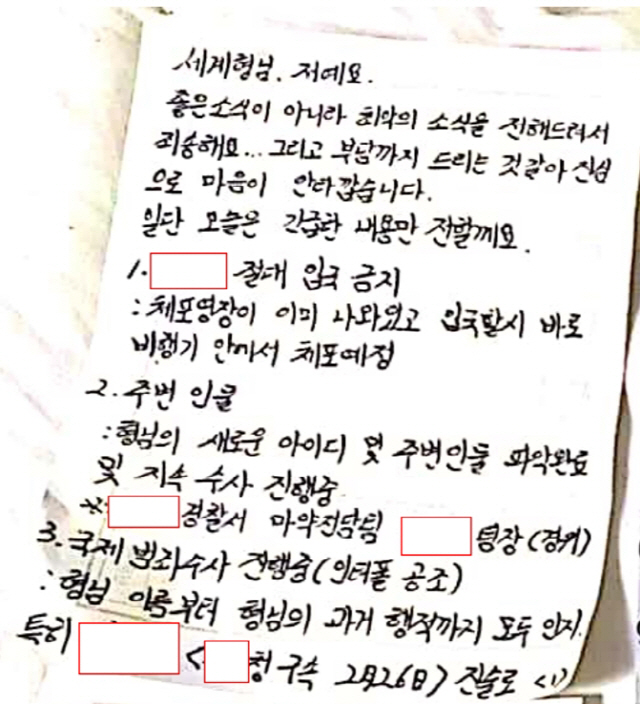 세계형님. 저예요.
좋은소식이 아니라 최악의 소식을 전해드려서
죄송해요... 그리고 부담까지 드리는 것같아 진심
으로 마음이 안타깝습니다.
일단 오늘은 긴급한 내용만 전할께요.
1. 절대 입국 금지
: 체포영장이 이미 나와있고 입국할시 바로
비행기 안에서 체포예정
2. 주변 인물
: 형님의 새로운 아이디 및 주변인물 파악완료
및 지속 수사 진행중
※ 경찰서 마약전담팀 팀장(경위)
3. 국제 범죄수사 진행중(인터폴 공조)
: 형님 이름부터 형님의 과거 행적까지 모두 인지.
특히 < 청 구속 2月26日> 진술로 <1>